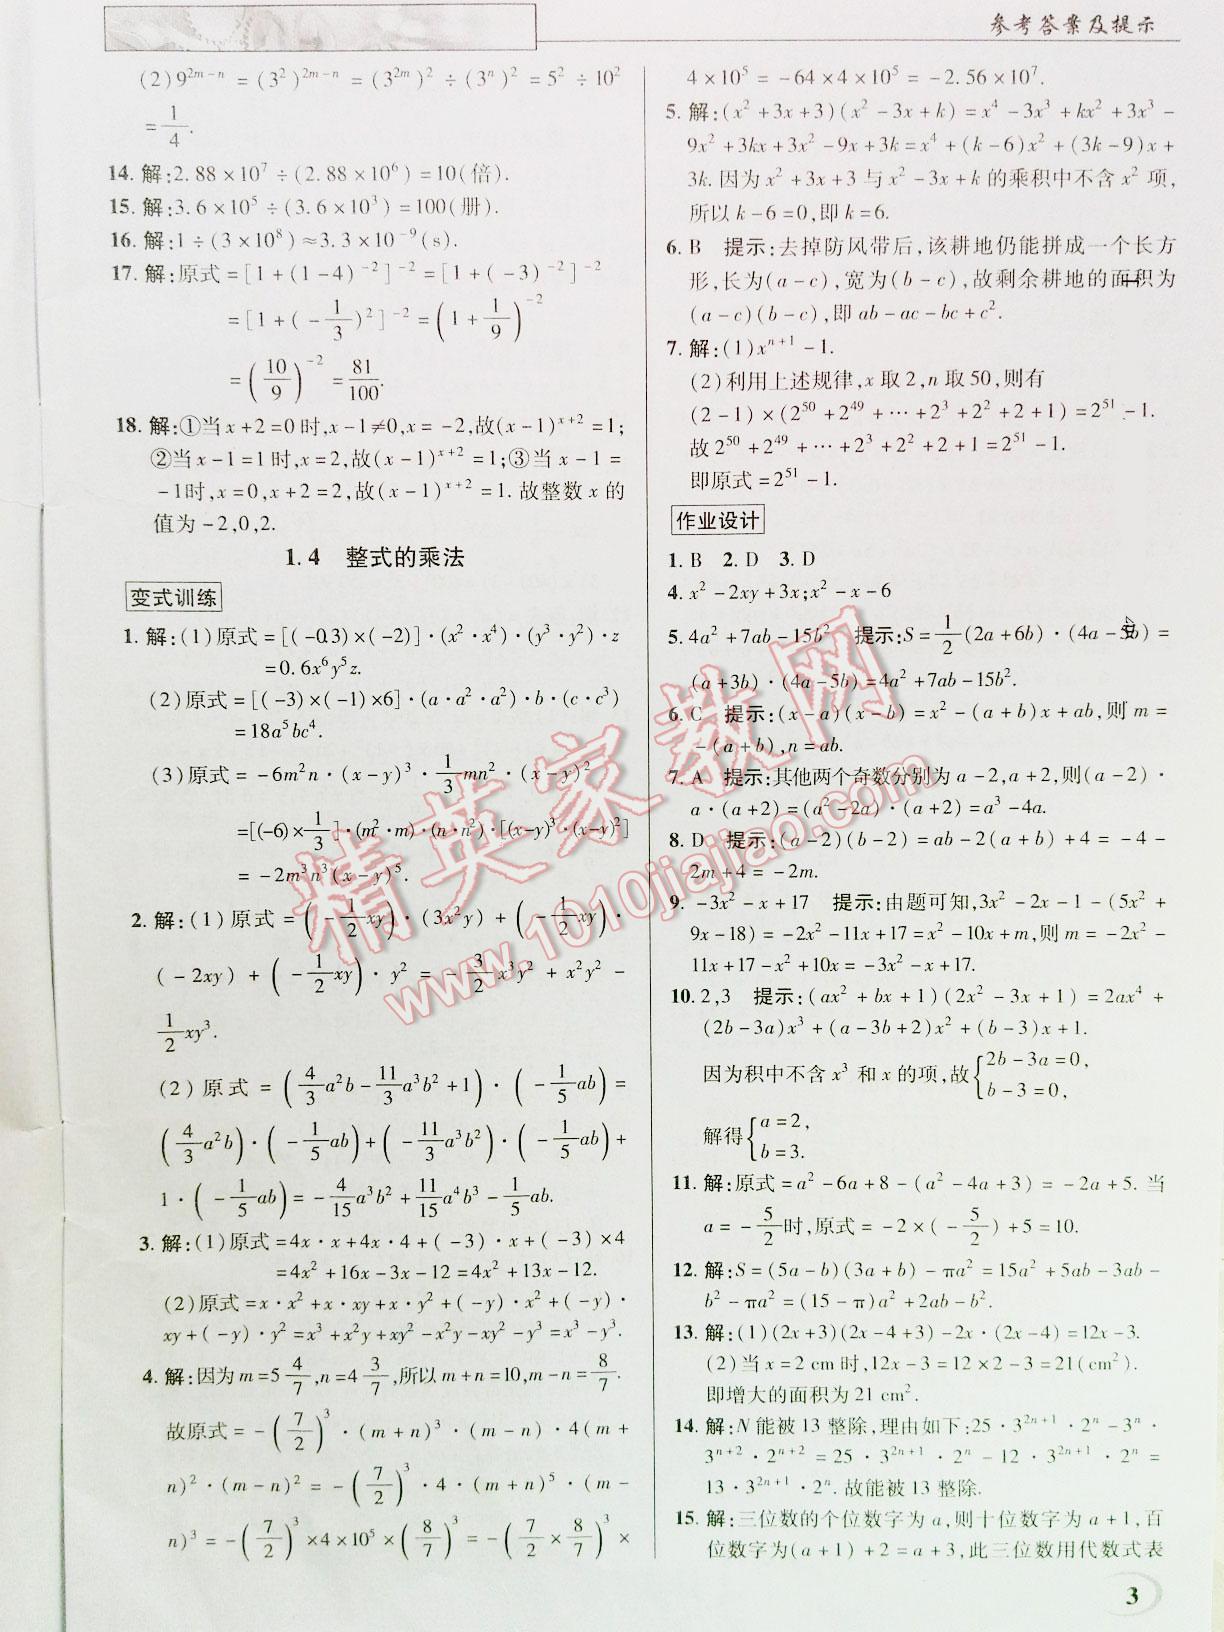 参考答案及提示
(2)9^{2m-n} = (3^2)^{2m-n} = (3^{2m})^2 ÷ (3^n)^2 = 5^2 ÷ 10^2
= 1/4.
14. 解:2.88×10^7÷(2.88×10^6)=10(倍).
15. 解:3.6×10^5÷(3.6×10^3)=100(册).
16. 解:1÷(3×10^8)≈3.3×10^{-9}(s).
17. 解:原式=[1+(1-4)^{-2}]^{-2}=[1+(-3)^{-2}]^{-2}
=[1+(-1/3)^2]^{-2}=(1+1/9)^{-2}
=(10/9)^{-2}=81/100.
18. 解:①当x+2=0时,x-1≠0,x=-2,故(x-1)^{x+2}=1;
②当x-1=1时,x=2,故(x-1)^{x+2}=1;③当x-1=
-1时,x=0,x+2=2,故(x-1)^{x+2}=1.故整数x的
值为-2,0,2.
1.4 整式的乘法
变式训练
1. 解:(1)原式=[(-0.3)×(-2)]·(x^2·x^4)·(y^3·y^2)·z
=0.6x^6y^5z.
(2)原式=[(-3)×(-1)×6]·(a·a^2·a^2)·b·(c·c^3)
=18a^5bc^4.
(3)原式=-6m^2n·(x-y)^3·1/3mn^2·(x-y)^2
=[(-6)×1/3]·(m^2·m)·(n·n^2)·[(x-y)^3·(x-y)^2]
=-2m^3n^3(x-y)^5.
2. 解:(1)原式=(-1/2xy)·(3x^2y)+(-1/2xy)·
(-2xy)+(-1/2xy)·y^2=-3/2x^3y^2+x^2y^2-
1/2xy^3.
(2)原式=(4/3a^2b-11/3a^3b^2+1)·(-1/5ab)=
(4/3a^2b)·(-1/5ab)+(-11/3a^3b^2)·(-1/5ab)+
1·(-1/5ab)=-4/15a^3b^2+11/15a^4b^3-1/5ab.
3. 解:(1)原式=4x·x+4x·4+(-3)·x+(-3)×4
=4x^2+16x-3x-12=4x^2+13x-12.
(2)原式=x·x^2+x·xy+x·y^2+(-y)·x^2+(-y)·
xy+(-y)·y^2=x^3+x^2y+xy^2-x^2y-xy^2-y^3=x^3-y^3.
4. 解:因为m=5 4/7,n=4 3/7,所以m+n=10,m-n=8/7.
故原式=-(7/2)^3·(m+n)^3·(m-n)·4(m+
n)^2·(m-n)^2=-(7/2)^3·4·(m+n)^5·(m-
n)^3=-(7/2)^3×4×10^5×(8/7)^3=-(7/2×8/7)^3×
4×10^5=-64×4×10^5=-2.56×10^7.
5. 解:(x^2+3x+3)(x^2-3x+k)=x^4-3x^3+kx^2+3x^3-
9x^2+3kx+3x^2-9x+3k=x^4+(k-6)x^2+(3k-9)x+
3k.因为x^2+3x+3与x^2-3x+k的乘积中不含x^2项,
所以k-6=0,即k=6.
6. B 提示:去掉防风带后,该耕地仍能拼成一个长方
形,长为(a-c),宽为(b-c),故剩余耕地的面积为
(a-c)(b-c),即ab-ac-bc+c^2.
7. 解:(1)x^{n+1}-1.
(2)利用上述规律,x取2,n取50,则有
(2-1)×(2^50+2^49+…+2^3+2^2+2+1)=2^51-1.
故2^50+2^49+…+2^3+2^2+2+1=2^51-1.
即原式=2^51-1.
作业设计
1. B 2. D 3. D
4. x^2-2xy+3x;x^2-x-6
5. 4a^2+7ab-15b^2 提示:S=1/2(2a+6b)·(4a-5b)=
(a+3b)·(4a-5b)=4a^2+7ab-15b^2.
6. C 提示:(x-a)(x-b)=x^2-(a+b)x+ab,则m=
-(a+b),n=ab.
7. A 提示:其他两个奇数分别为a-2,a+2,则(a-2)·
a·(a+2)=(a^2-2a)·(a+2)=a^3-4a.
8. D 提示:(a-2)(b-2)=ab-2(a+b)+4=-4-
2m+4=-2m.
9. -3x^2-x+17 提示:由题可知,3x^2-2x-1-(5x^2+
9x-18)=-2x^2-11x+17=x^2-10x+m,则m=-2x^2-
11x+17-x^2+10x=-3x^2-x+17.
10. 2,3 提示:(ax^2+bx+1)(2x^2-3x+1)=2ax^4+
(2b-3a)x^3+(a-3b+2)x^2+(b-3)x+1.
因为积中不含x^3和x的项,故{2b-3a=0, b-3=0,
解得{a=2, b=3.
11. 解:原式=a^2-6a+8-(a^2-4a+3)=-2a+5.当
a=-5/2时,原式=-2×(-5/2)+5=10.
12. 解:S=(5a-b)(3a+b)-πa^2=15a^2+5ab-3ab-
b^2-πa^2=(15-π)a^2+2ab-b^2.
13. 解:(1)(2x+3)(2x-4+3)-2x·(2x-4)=12x-3.
(2)当x=2 cm时,12x-3=12×2-3=21(cm^2).
即增大的面积为21 cm^2.
14. 解:N能被13整除,理由如下:25·3^{2n+1}·2^n-3^n·
3^{n+2}·2^{n+2}=25·3^{2n+1}·2^n-12·3^{2n+1}·2^n=
13·3^{2n+1}·2^n.故能被13整除.
15. 解:三位数的个位数字为a,则十位数字为a+1,百
位数字为(a+1)+2=a+3,此三位数用代数式表
3
精英家教网
www.1010jiajiao.com